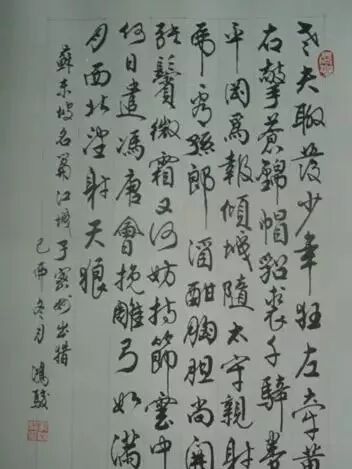 老夫聊發少年狂左牽黄
右擎蒼錦帽貂裘千騎卷
平岡爲報傾城隨太守親射
虎看孫郎酒酣胸胆尚開
張鬢微霜又何妨持節雲中
何日遣馮唐會挽雕弓如滿
月西北望射天狼
蘇東坡名篇江城子密州出猎
己卯冬月 鴻駿